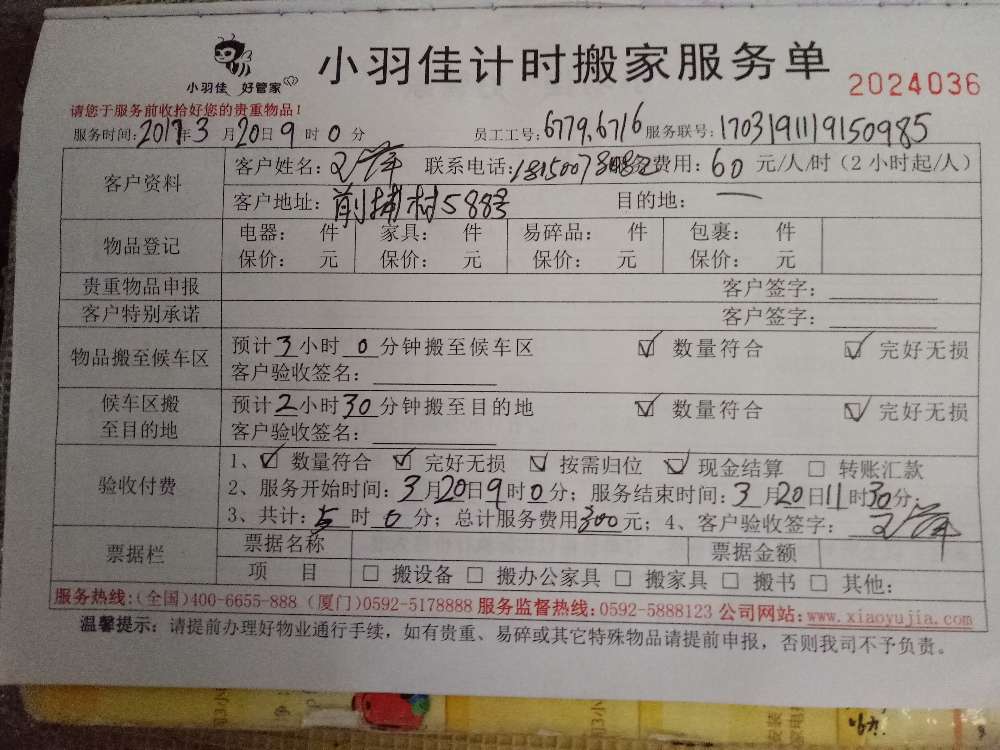 小羽佳 好管家
小羽佳计时搬家服务单
2024036
请您于服务前收拾好您的贵重物品!
服务时间:2019年3月20日9时0分 员工工号:6779,6716 服务联号:1703191119150985
客户资料
客户姓名: 联系电话: 费用:60元/人/时(2小时起/人)
客户地址:前埔村588号 目的地:一
物品登记
电器: 件 家具: 件 易碎品: 件 包裹: 件
保价: 元 保价: 元 保价: 元 保价: 元
贵重物品申报 客户签字:
客户特别承诺 客户签字:
物品搬至候车区
预计3小时0分钟搬至候车区 ☑ 数量符合 ☑ 完好无损
客户验收签名:
候车区搬至目的地
预计2小时30分钟搬至目的地 ☑ 数量符合 ☑ 完好无损
客户验收签名:
验收付费
1、☑ 数量符合 ☑ 完好无损 ☑ 按需归位 ☑ 现金结算 □ 转账汇款
2、服务开始时间:3月20日9时0分;服务结束时间:3月20日11时30分;
3、共计:5时0分;总计服务费用300元;4、客户验收签字:
票据栏
票据名称 票据金额
项 目 □ 搬设备 □ 搬办公家具 □ 搬家具 □ 搬书 □ 其他:
服务热线:(全国)400-6655-888 (厦门)0592-5178888 服务监督热线:0592-5888123 公司网站:www.xiaoyujia.com
温馨提示:请提前办理好物业通行手续,如有贵重、易碎或其它特殊物品请提前申报,否则我司不予负责。